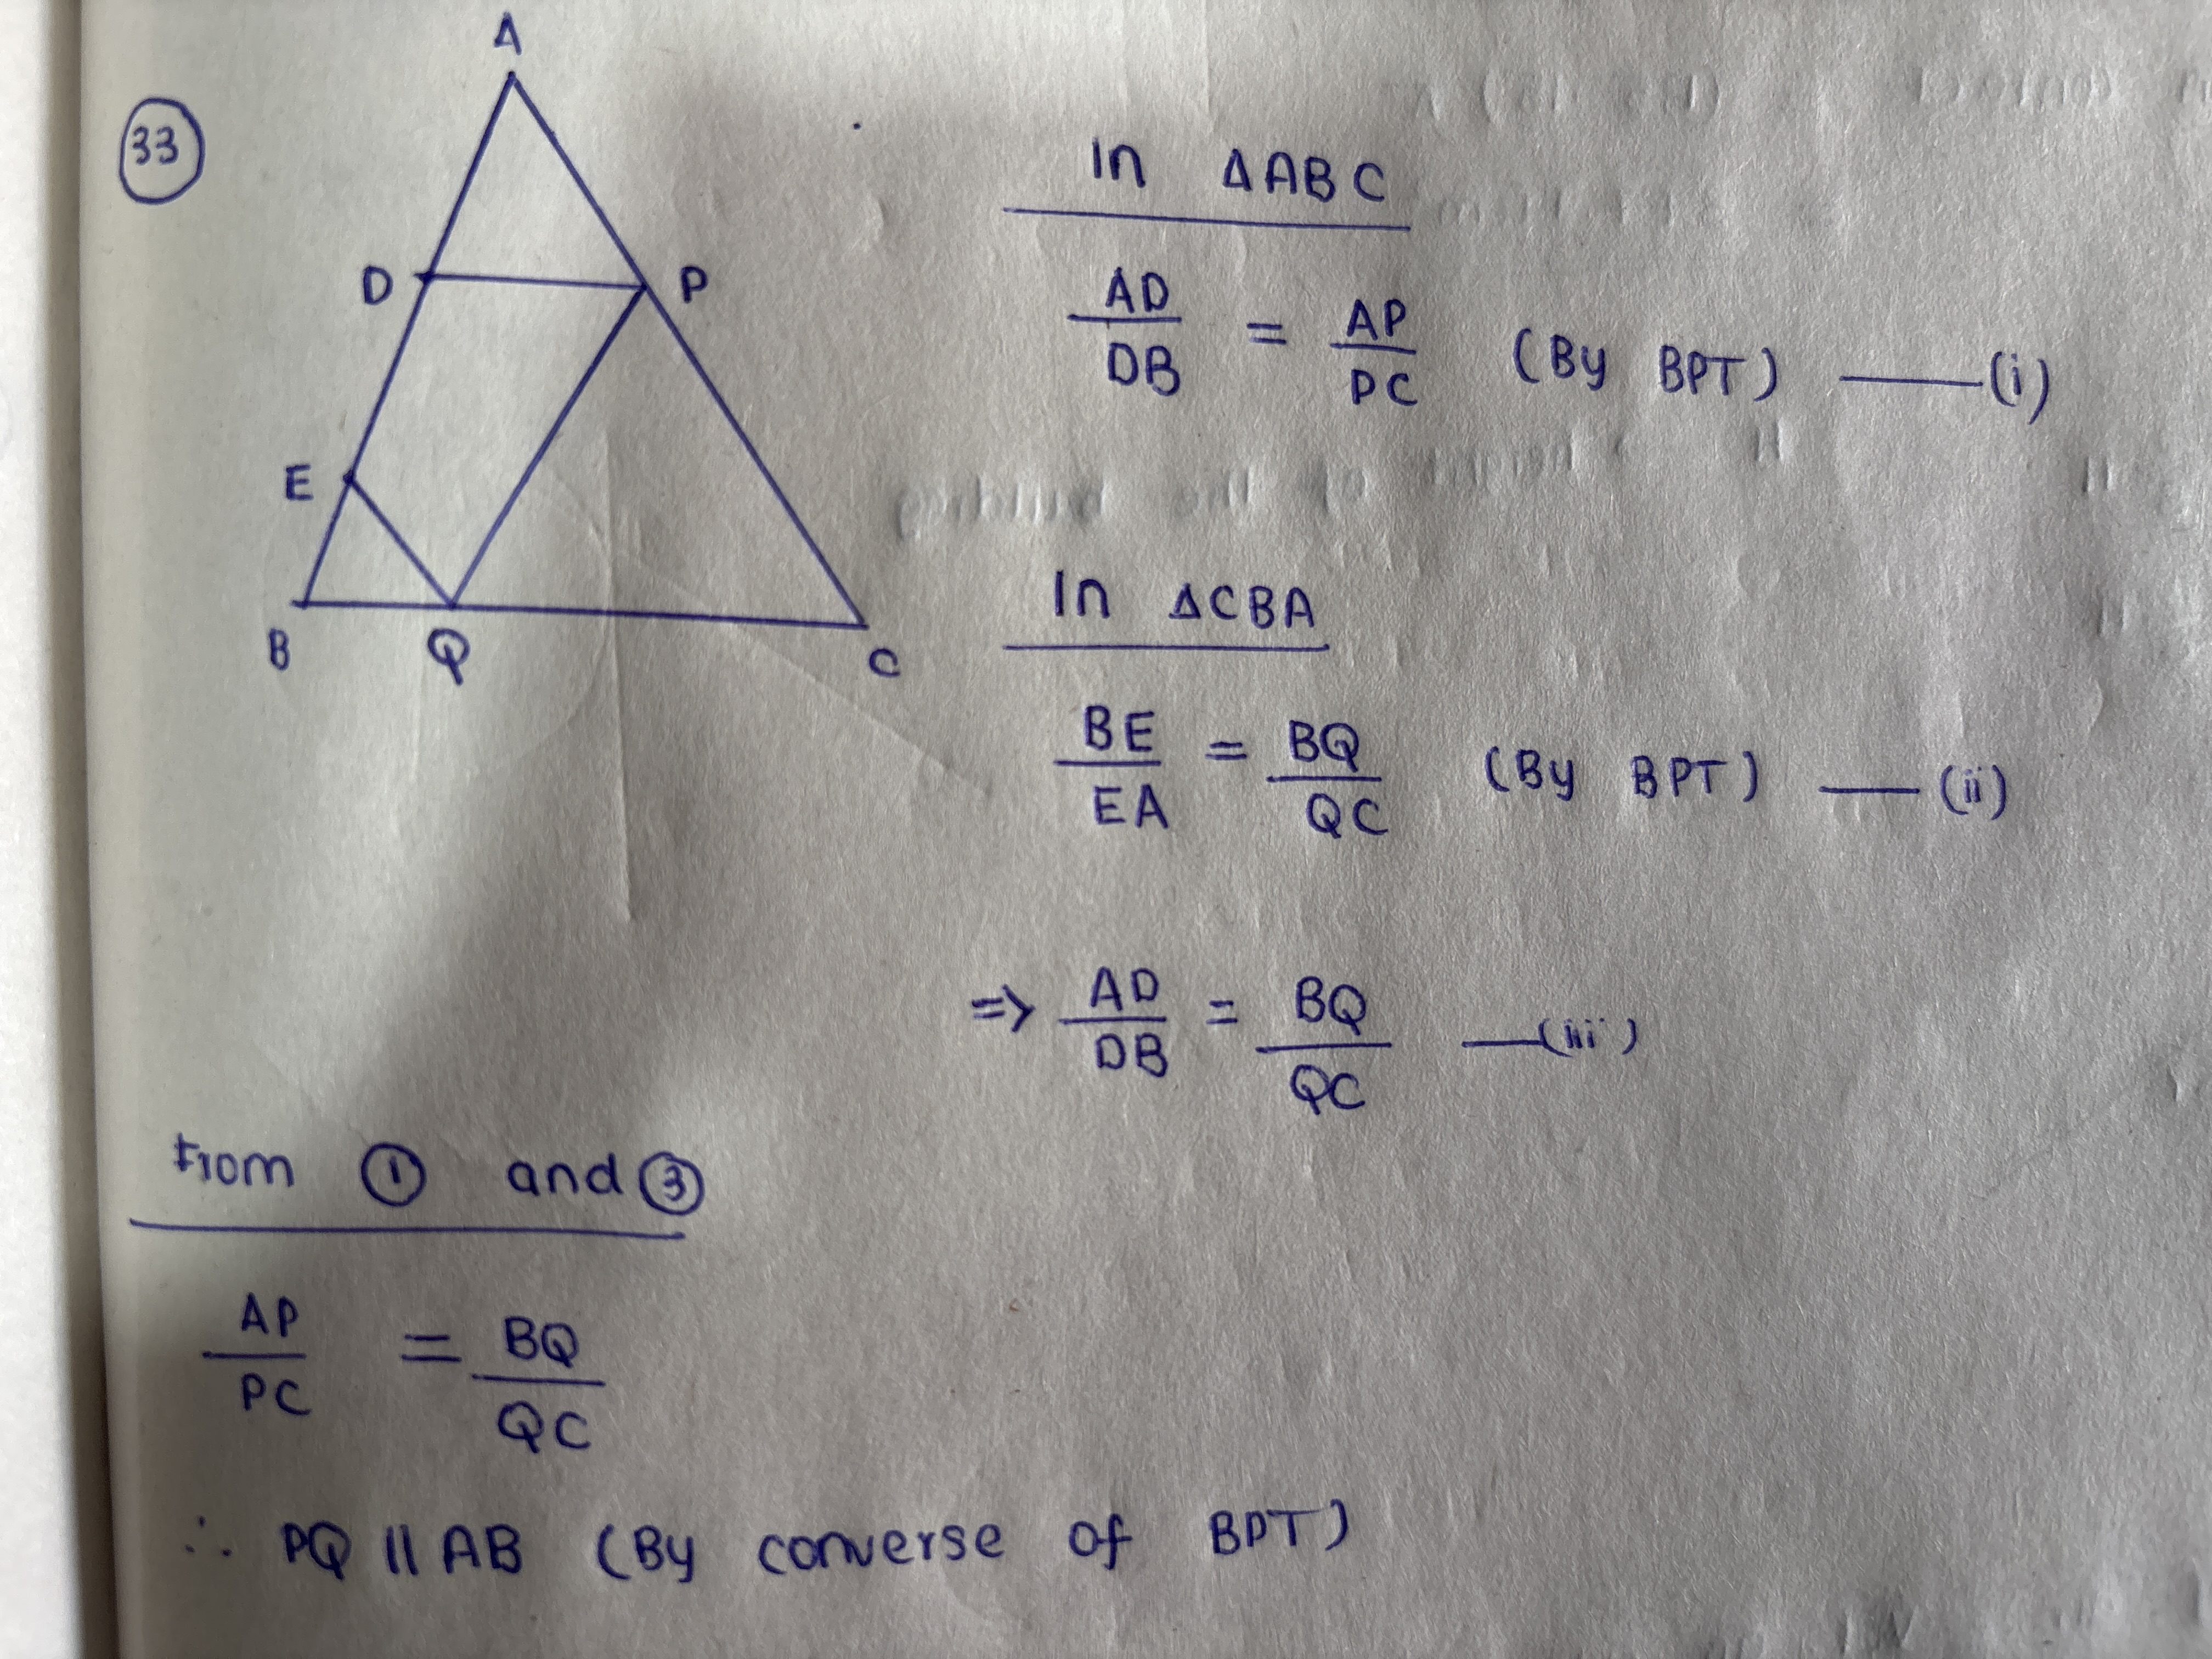 33
A
D
P
E
B
Q
C
In ΔABC
AD/DB = AP/PC (By BPT) —(i)
In ΔCBA
BE/EA = BQ/QC (By BPT) —(ii)
=> AD/DB = BQ/QC —(iii)
from ① and ③
AP/PC = BQ/QC
∴ PQ || AB (By converse of BPT)